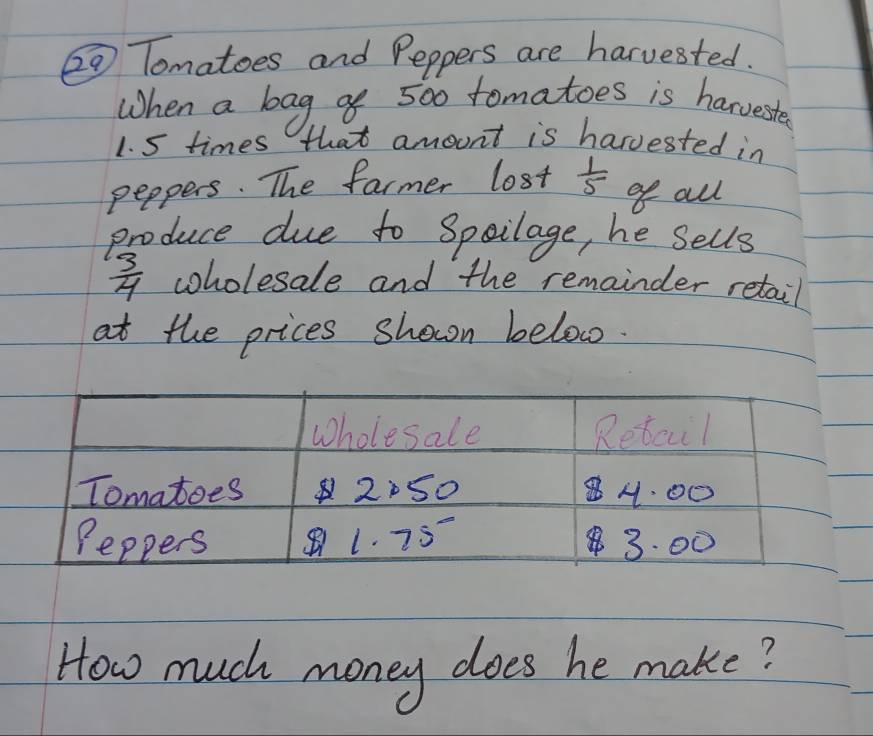 29 Tomatoes and Peppers are harvested.
When a bag of 500 tomatoes is harvested
1.5 times that amount is harvested in
peppers. The farmer lost 1/5 of all
produce due to spoilage, he sells
3/4 wholesale and the remainder retail
at the prices shown below.
Wholesale Retail
Tomatoes $2.50 $4.00
Peppers $1.75 $3.00
How much money does he make?